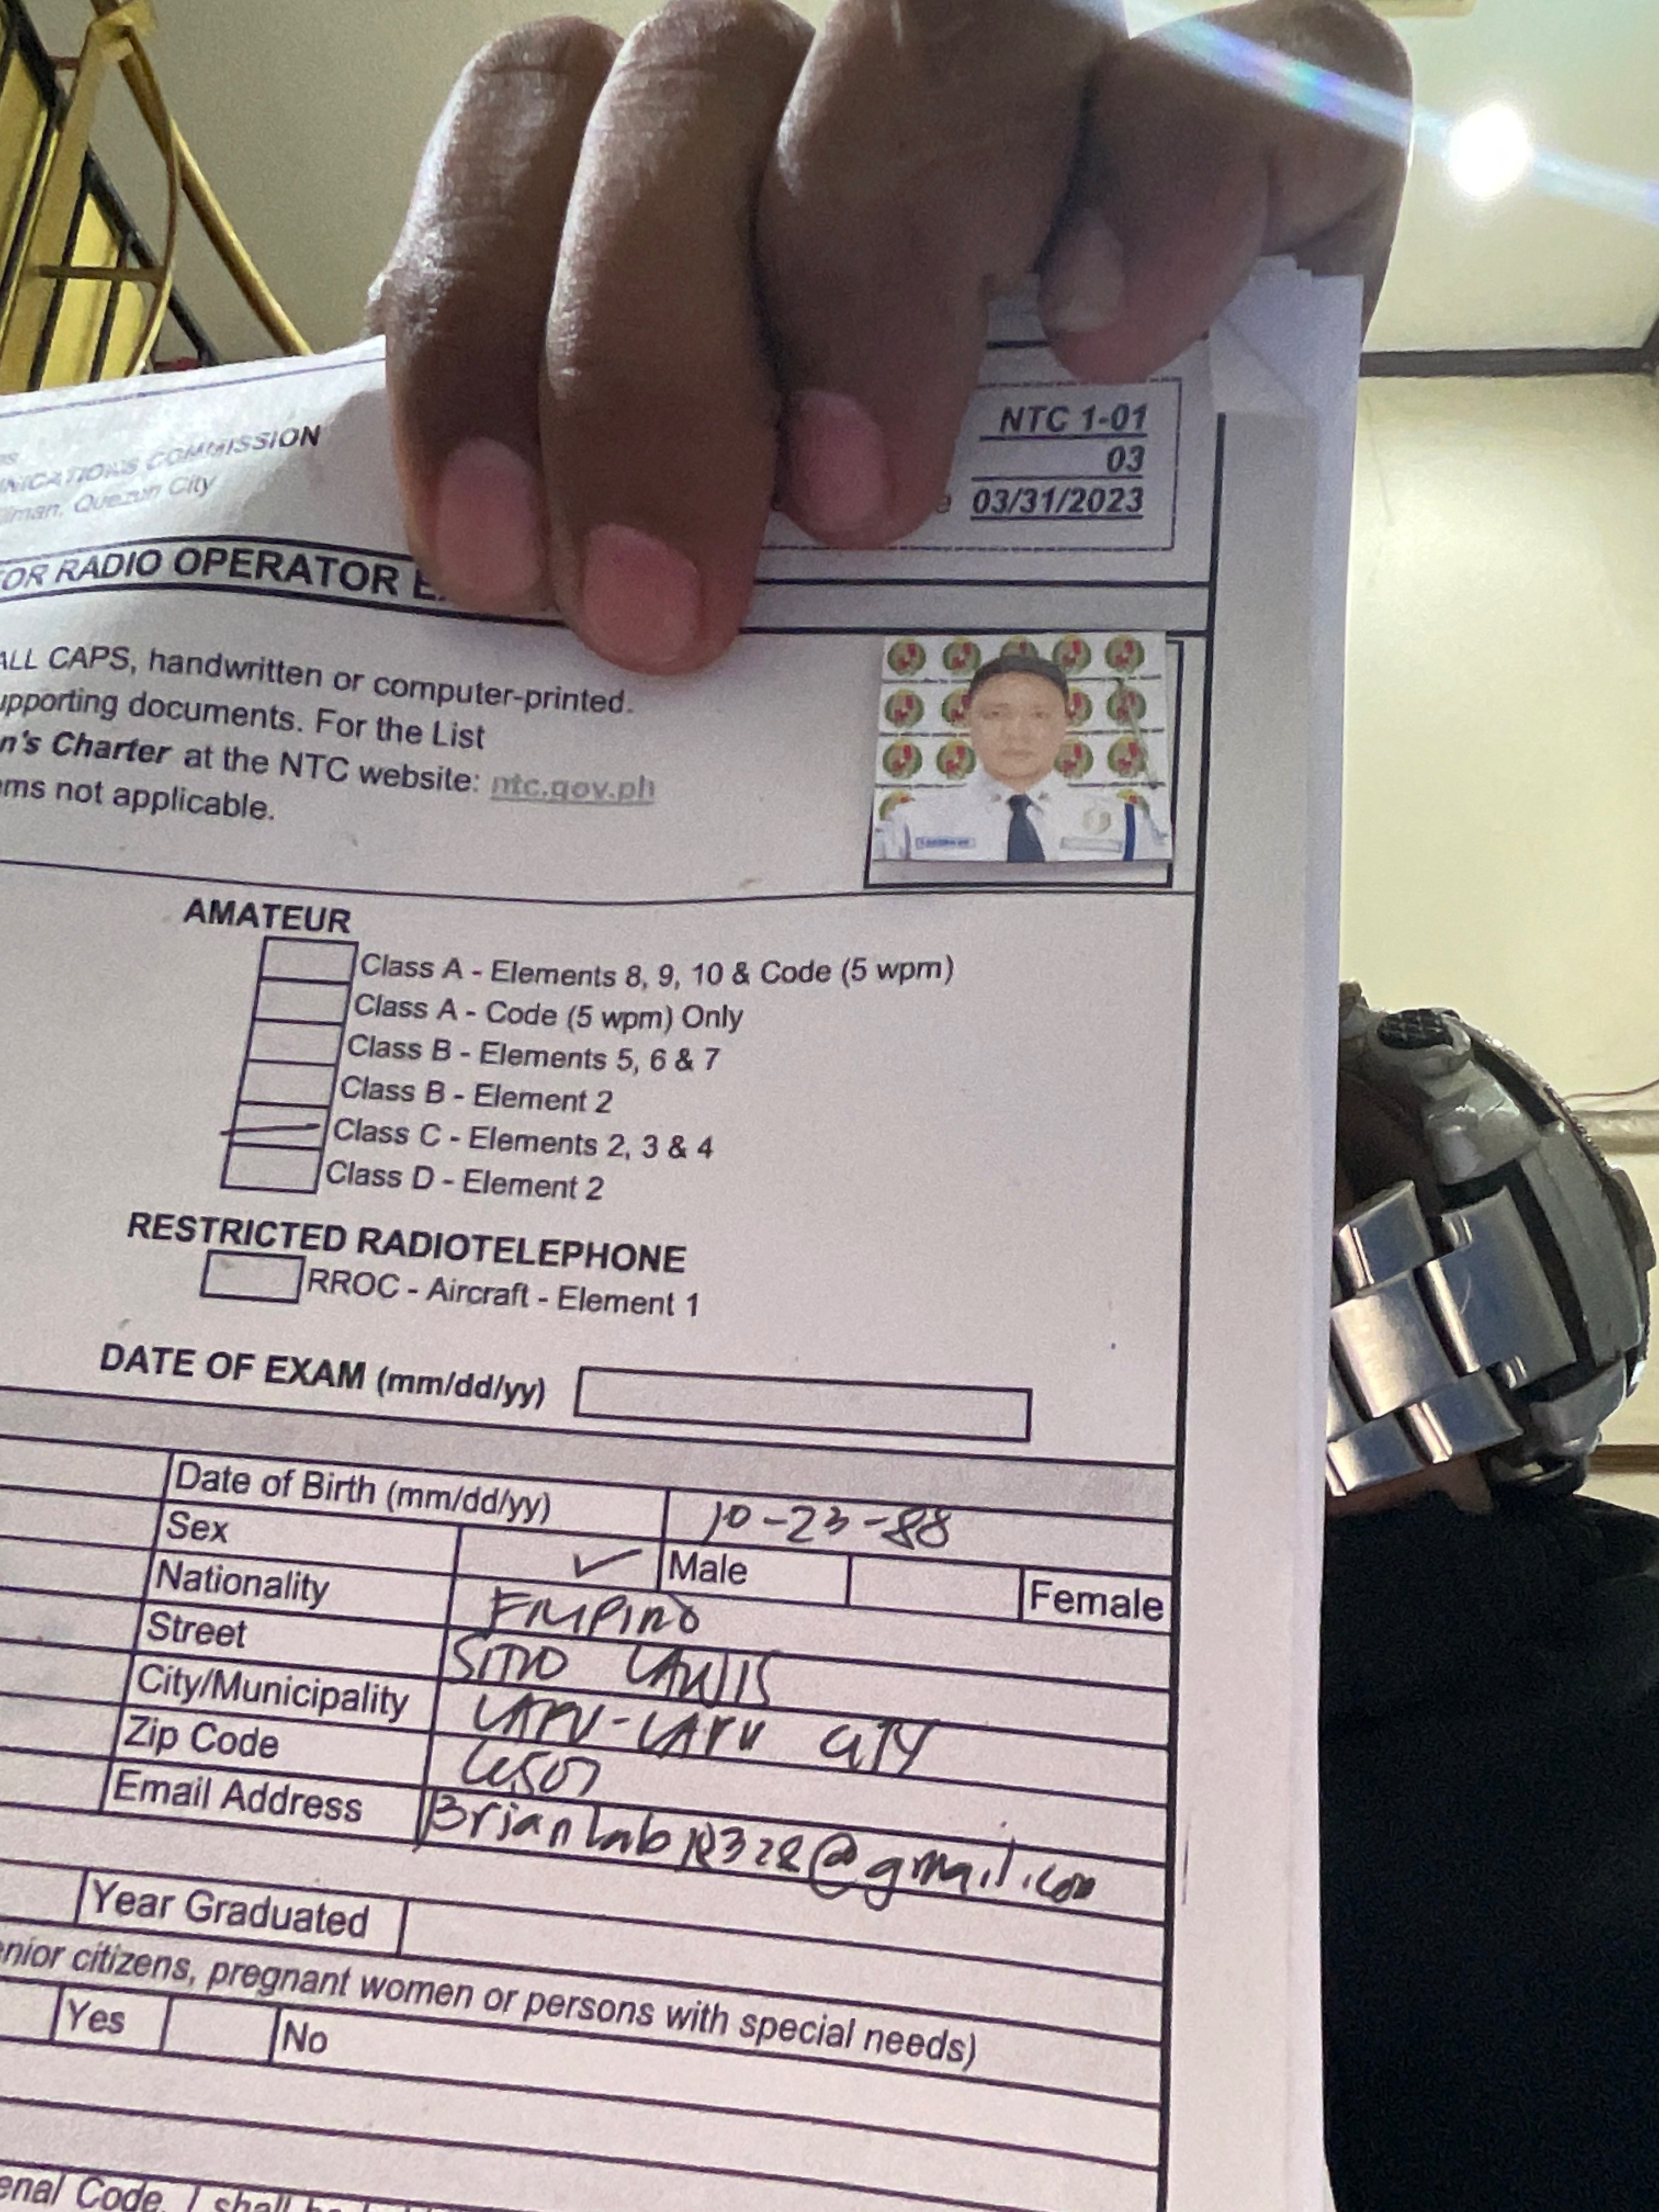 NTC 1-01
03
03/31/2023
COMMISSION
Quezon City
OR RADIO OPERATOR
ALL CAPS, handwritten or computer-printed.
upporting documents. For the List
n's Charter at the NTC website: ntc.gov.ph
ms not applicable.
AMATEUR
Class A - Elements 8, 9, 10 & Code (5 wpm)
Class A - Code (5 wpm) Only
Class B - Elements 5, 6 & 7
Class B - Element 2
Class C - Elements 2, 3 & 4
Class D - Element 2
RESTRICTED RADIOTELEPHONE
RROC - Aircraft - Element 1
DATE OF EXAM (mm/dd/yy)
Date of Birth (mm/dd/yy) 10-23-88
Sex ✓ Male Female
Nationality FILIPINO
Street SITIO LAWIS
City/Municipality LAPU-LAPU CITY
Zip Code
Email Address
Year Graduated
enior citizens, pregnant women or persons with special needs)
Yes No
enal Code, I shall be